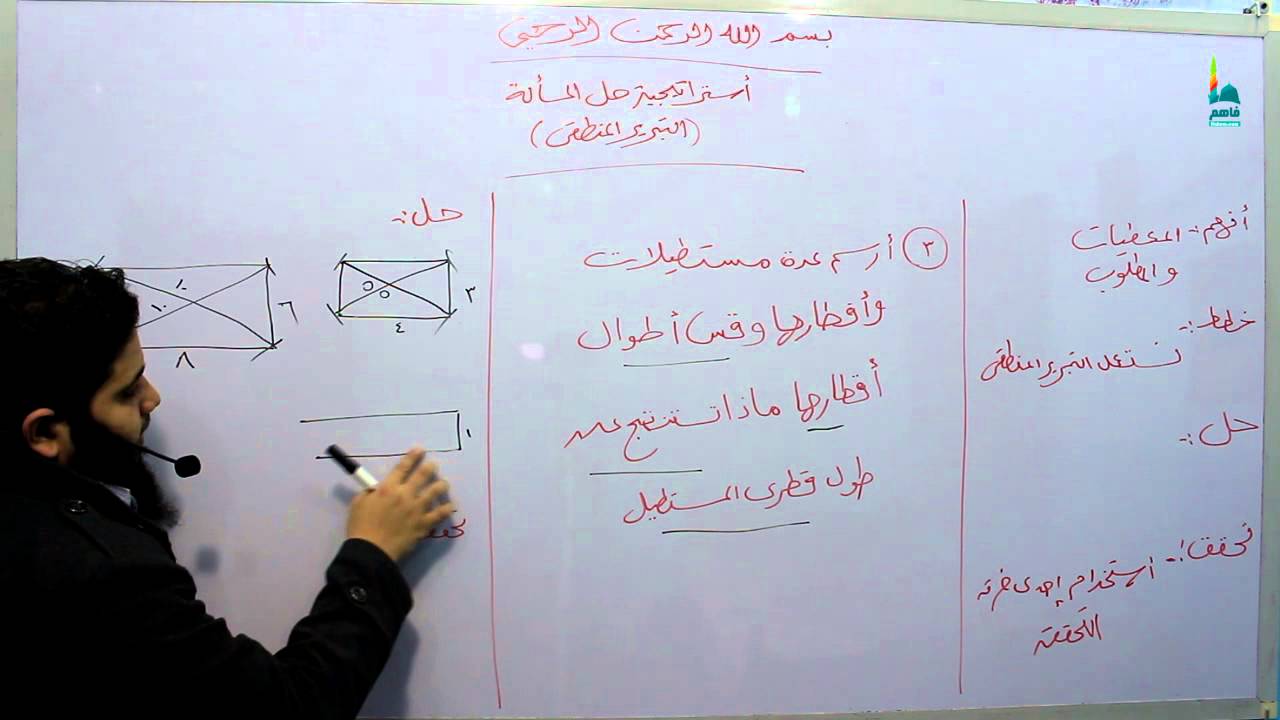 بسم الله الرحمن الرحيم
أستراتيجية حل المسألة
(التبرير المنطقى)
أفهم:- المعطيات
والمطلوب
خطط:-
نستعمل التبرير المنطقى
حل:-
تحقق:- استخدام إحدى طرق
التحقق
٣ أرسم عدة مستطيلات
وأقطارها وقس أطوال
أقطارها ماذا تستنتج عن
طول قطرى المستطيل
حل:-
٥
٥
٣
٤
١٠
١٠
٦
٨
١
فاهم